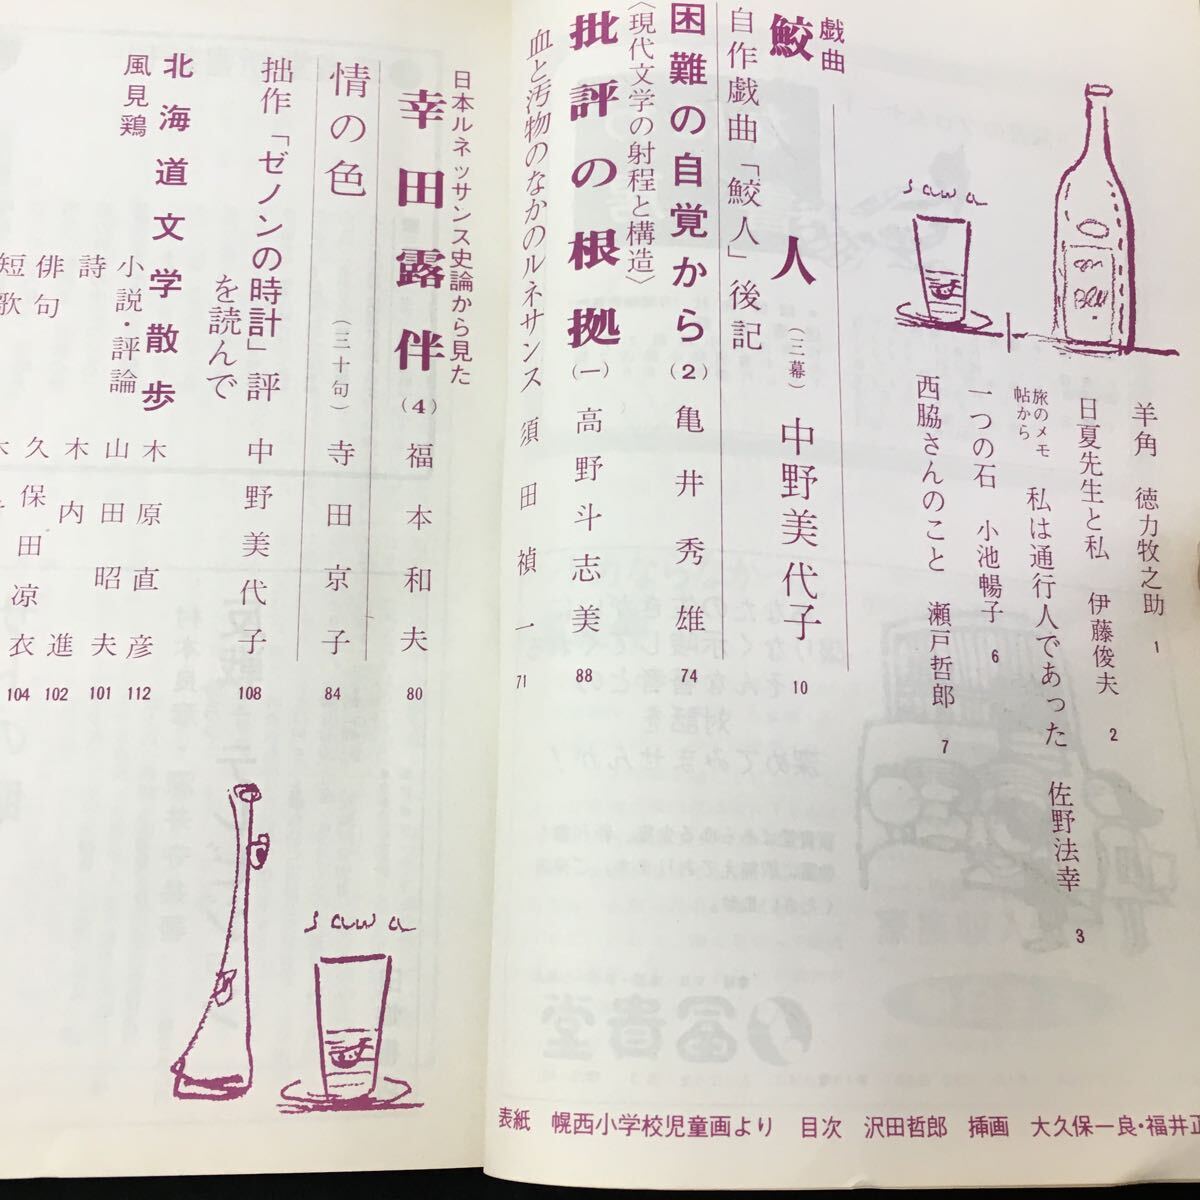 羊角 徳力牧之助 1
日夏先生と私 伊藤俊夫 2
旅のメモ帖から 私は通行人であった 佐野法幸 3
一つの石 小池暢子 6
西脇さんのこと 瀬戸哲郎 7
sawa
戯曲
鮫人 (三幕) 中野美代子 10
自作戯曲「鮫人」後記
困難の自覚から(2) 亀井秀雄 74
〈現代文学の射程と構造〉
批評の根拠(一) 高野斗志美 88
血と汚物のなかのルネサンス 須田禎一 71
日本ルネッサンス史論から見た
幸田露伴(4) 福本和夫 80
情の色 (三十句) 寺田京子 84
拙作「ゼノンの時計」評を読んで 中野美代子 108
北海道文学散歩 木原直彦 112
風見鶏
小説・評論 山田昭夫 101
詩 木内進 102
俳句 久保田凉衣 104
短歌
sawa
表紙 幌西小学校児童画より 目次 沢田哲郎 挿画 大久保一良・福井正